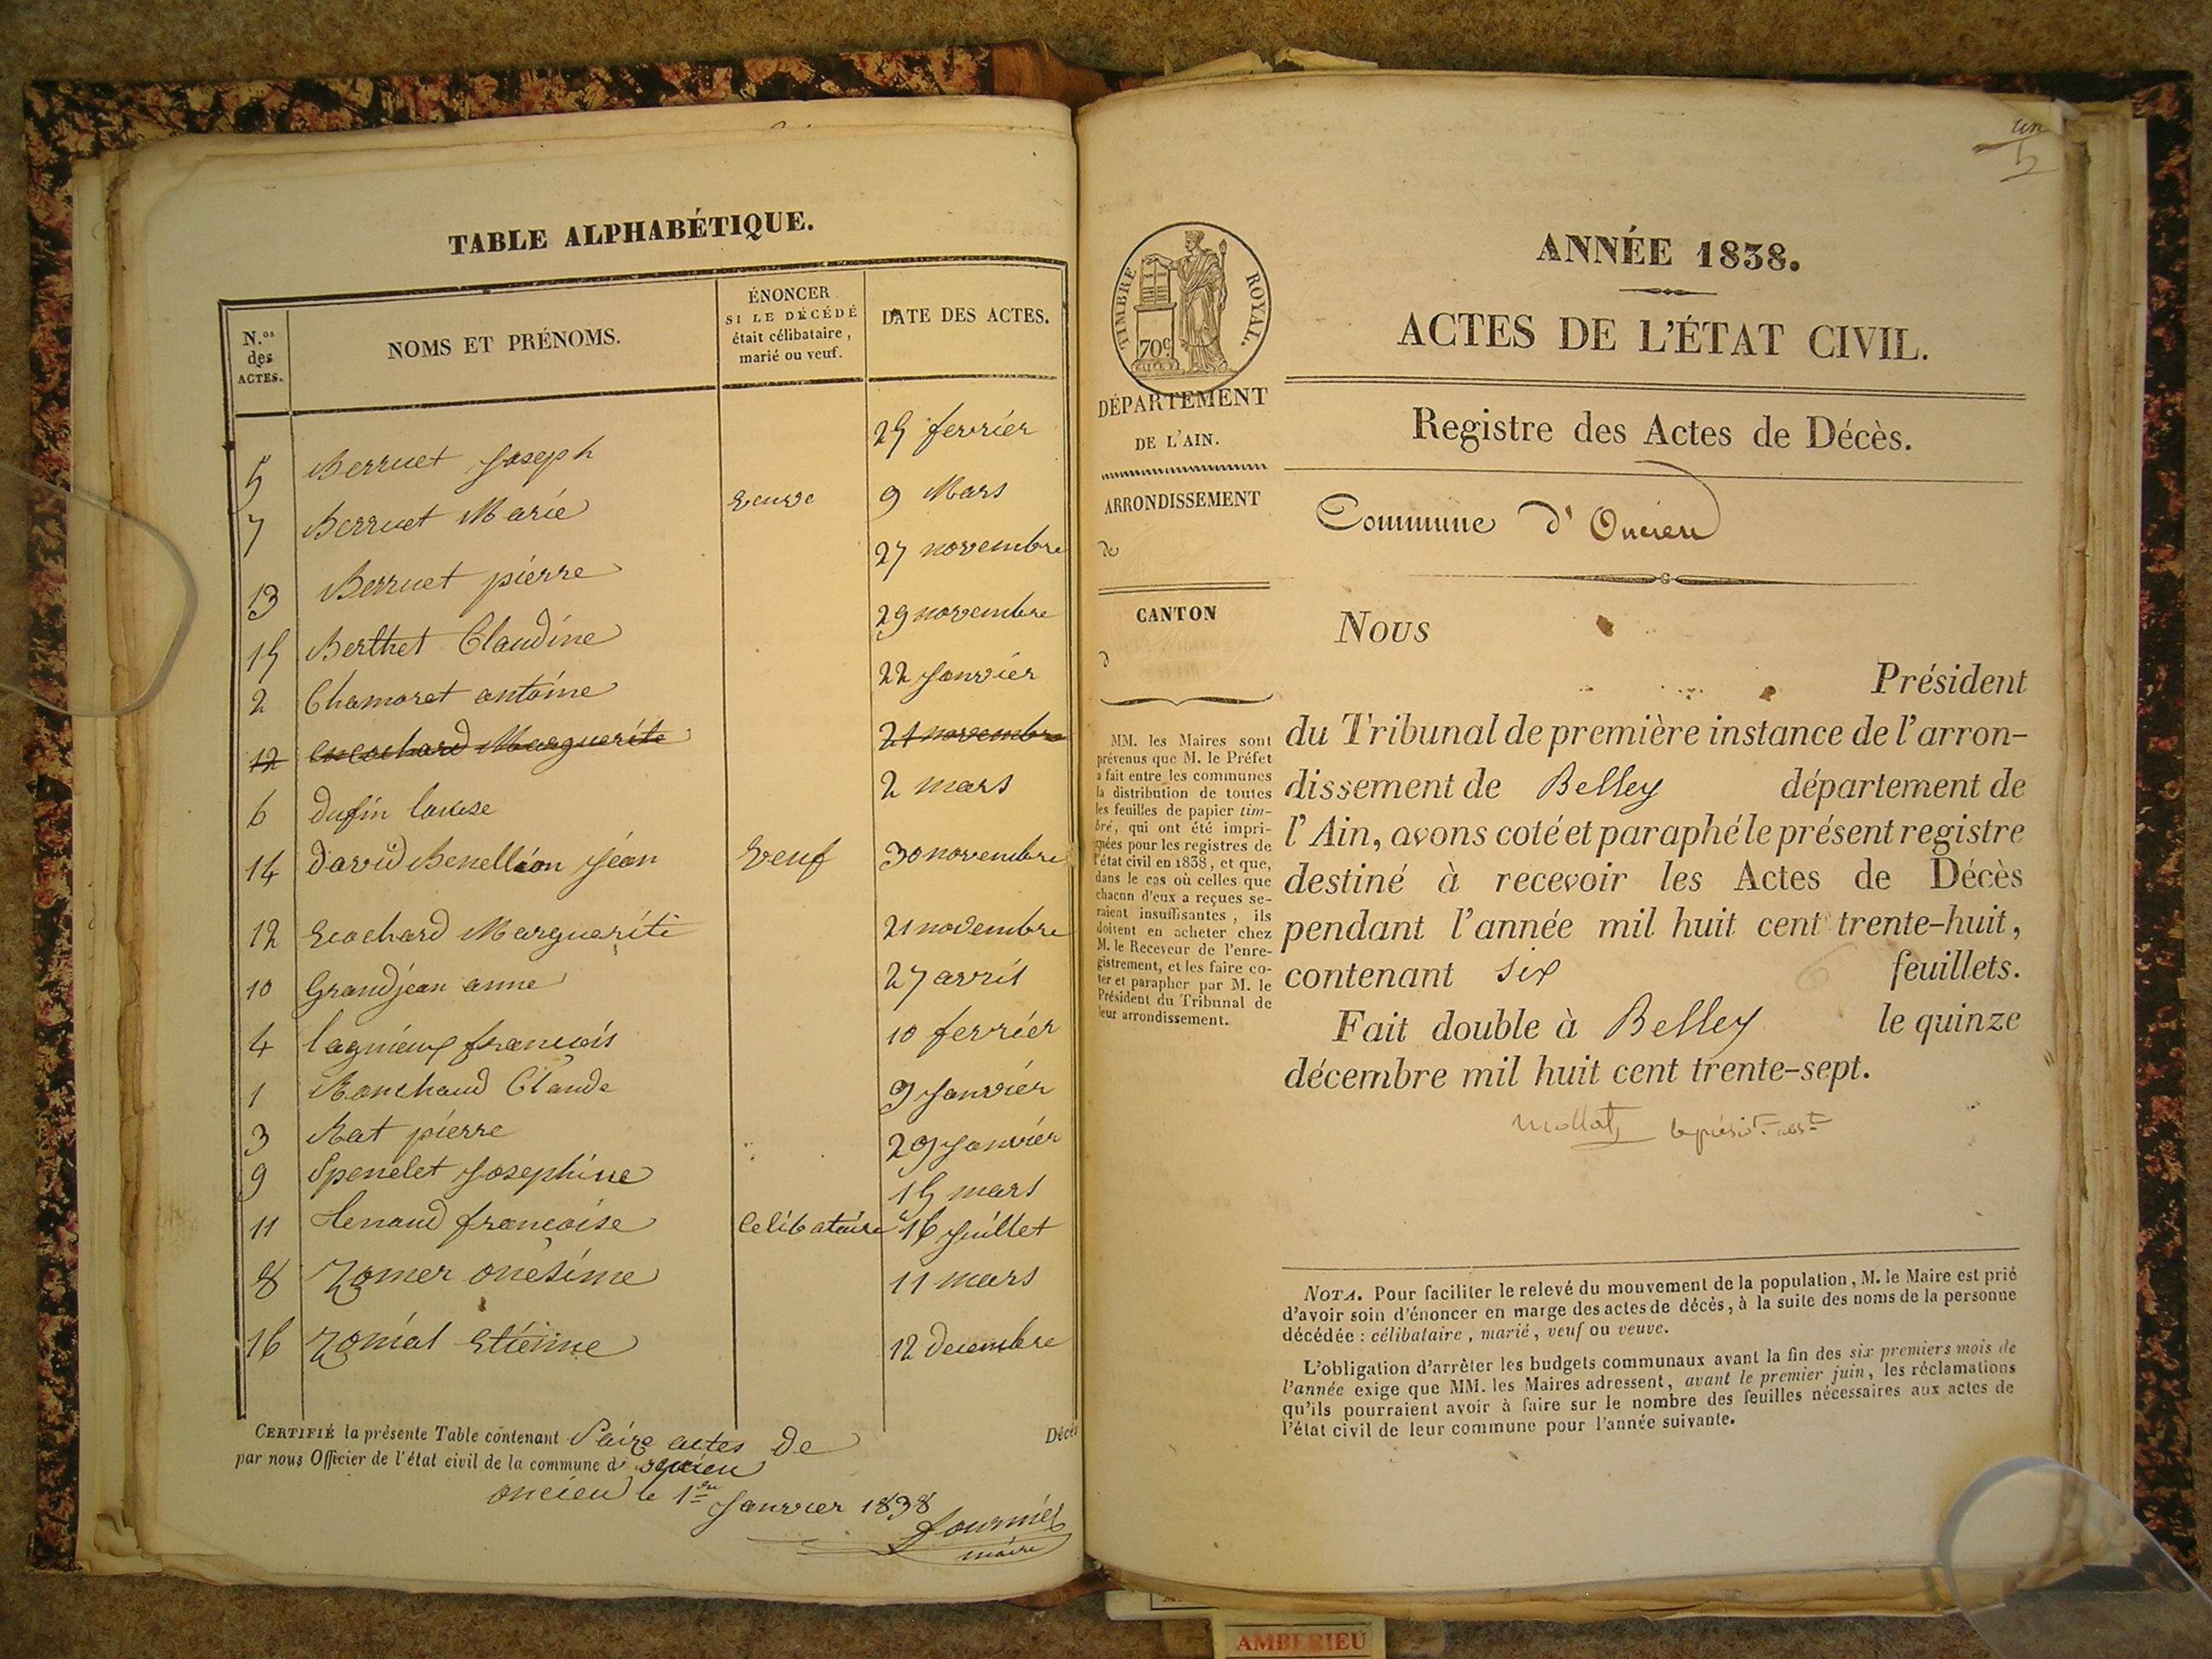 TABLE ALPHABÉTIQUE.
N.os des ACTES.
NOMS ET PRÉNOMS.
ÉNONCER
SI LE DÉCÉDÉ
était célibataire,
marié ou veuf.
DATE DES ACTES.
5 Berruet Joseph 25 fevrier
7 Berruet Marie veuve 9 Mars
13 Berruet pierre 27 novembre
15 Berthet Claudine 29 novembre
2 Chamoret antoine 22 Janvier
12 Marguerite 21 novembre
6 dufin louise 2 mars
14 david Benellion Jéan Veuf 30 novembre
12 Ecochard Marguerite 21 novembre
10 Grandjean anne 27 avril
4 lagnieux francois 10 fevriér
1 Ronchaud Claude 9 Janviér
3 Rat piérre 29 Janviér
9 Spenelet Josephine 15 mars
11 françoise Celibataire 16 Juillet
8 onésime 11 mars
16 Etiénne 12 decembre
CERTIFIÉ la présente Table contenant Saize actes de Décès
par nous Officier de l'état civil de la commune d'
oncieu le 1re Janvier 1838
fourniér
maire
un
ANNÉE 1838.
ACTES DE L'ÉTAT CIVIL.
TIMBRE ROYAL.
70c
DÉPARTEMENT
DE L'AIN.
ARRONDISSEMENT
de
CANTON
d
MM. les Maires sont
prévenus que M. le Préfet
a fait entre les communes
la distribution de toutes
les feuilles de papier tim-
bré, qui ont été impri-
mées pour les registres de
l'état civil en 1838, et que,
dans le cas où celles que
chacun d'eux a reçues se-
raient insuffisantes, ils
doivent en acheter chez
M. le Receveur de l'enre-
gistrement, et les faire co-
ter et parapher par M. le
Président du Tribunal de
leur arrondissement.
Registre des Actes de Décès.
Commune d'Oncieu
Nous
Président
du Tribunal de première instance de l'arron-
dissement de Belley département de
l'Ain, avons coté et paraphé le présent registre
destiné à recevoir les Actes de Décès
pendant l'année mil huit cent trente-huit,
contenant six 6 feuillets.
Fait double à Belley le quinze
décembre mil huit cent trente-sept.
NOTA. Pour faciliter le relevé du mouvement de la population, M. le Maire est prié
d'avoir soin d'énoncer en marge des actes de décès, à la suite des noms de la personne
décédée : célibataire, marié, veuf ou veuve.
L'obligation d'arrêter les budgets communaux avant la fin des six premiers mois de
l'année exige que MM. les Maires adressent, avant le premier juin, les réclamations
qu'ils pourraient avoir à faire sur le nombre des feuilles nécessaires aux actes de
l'état civil de leur commune pour l'année suivante.
AMBERIEU